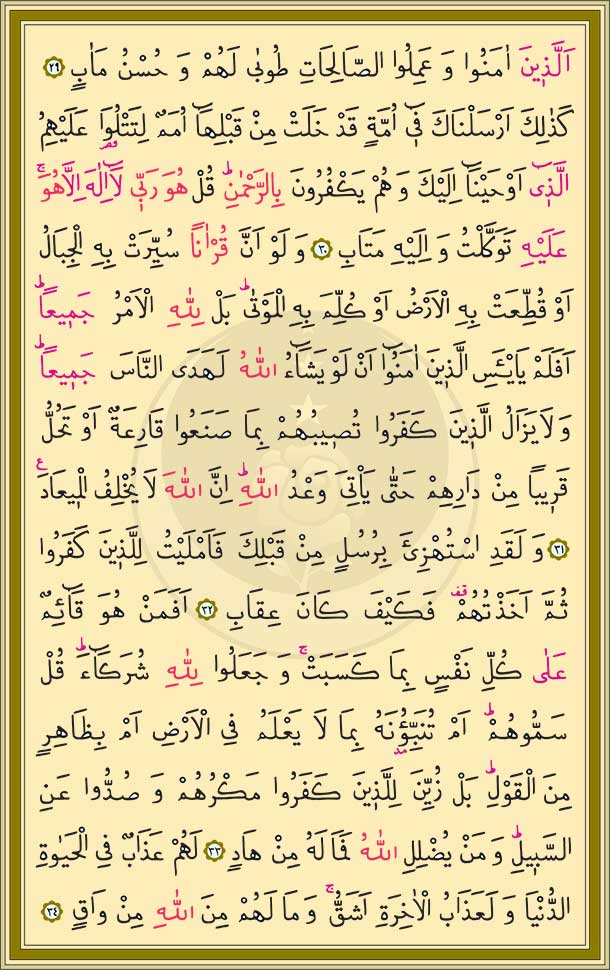 اَلَّذٖينَ اٰمَنُوا وَ عَمِلُوا الصَّالِحَاتِ طُوبٰى لَهُمْ وَ حُسْنُ مَاٰبٍ ﴿٢٩﴾
كَذٰلِكَ اَرْسَلْنَاكَ فٖٓى اُمَّةٍ قَدْ خَلَتْ مِنْ قَبْلِهَٓا اُمَمٌ لِتَتْلُوَا عَلَيْهِمُ
الَّذٖٓى اَوْحَيْنَٓا اِلَيْكَ وَ هُمْ يَكْفُرُونَ بِالرَّحْمٰنِؕ قُلْ هُوَ رَبّٖى لَٓا اِلٰهَ اِلَّا هُوَۚ
عَلَيْهِ تَوَكَّلْتُ وَ اِلَيْهِ مَتَابِ ﴿٣٠﴾ وَ لَوْ اَنَّ قُرْاٰناً سُيِّرَتْ بِهِ الْجِبَالُ
اَوْ قُطِّعَتْ بِهِ الْاَرْضُ اَوْ كُلِّمَ بِهِ الْمَوْتٰىؕ بَلْ لِلّٰهِ الْاَمْرُ جَمٖيعاًؕ
اَفَلَمْ يَايْـَٔسِ الَّذٖينَ اٰمَنُٓوا اَنْ لَوْ يَشَٓاءُ اللّٰهُ لَهَدَى النَّاسَ جَمٖيعاًؕ
وَ لَا يَزَالُ الَّذٖينَ كَفَرُوا تُصٖيبُهُمْ بِمَا صَنَعُوا قَارِعَةٌ اَوْ تَحُلُّ
قَرٖيباً مِنْ دَارِهِمْ حَتّٰى يَاْتِىَ وَعْدُ اللّٰهِؕ اِنَّ اللّٰهَ لَا يُخْلِفُ الْمٖيعَادَࣖ
﴿٣١﴾ وَ لَقَدِ اسْتُهْزِئَ بِرُسُلٍ مِنْ قَبْلِكَ فَاَمْلَيْتُ لِلَّذٖينَ كَفَرُوا
ثُمَّ اَخَذْتُهُمْ۠ فَكَيْفَ كَانَ عِقَابِ ﴿٣٢﴾ اَفَمَنْ هُوَ قَٓائِمٌ
عَلٰى كُلِّ نَفْسٍ بِمَا كَسَبَتْۚ وَ جَعَلُوا لِلّٰهِ شُرَكَٓاءَؕ قُلْ
سَمُّوهُمْؕ اَمْ تُنَبِّؤُ۫نَهُ بِمَا لَا يَعْلَمُ فِى الْاَرْضِ اَمْ بِظَاهِرٍ
مِنَ الْقَوْلِؕ بَلْ زُيِّنَ لِلَّذٖينَ كَفَرُوا مَكْرُهُمْ وَ صُدُّوا عَنِ
السَّبٖيلِؕ وَ مَنْ يُضْلِلِ اللّٰهُ فَمَا لَهُ مِنْ هَادٍ ﴿٣٣﴾ لَهُمْ عَذَابٌ فِى الْحَيٰوةِ
الدُّنْيَا وَ لَعَذَابُ الْاٰخِرَةِ اَشَقُّۚ وَ مَا لَهُمْ مِنَ اللّٰهِ مِنْ وَاقٍ ﴿٣٤﴾